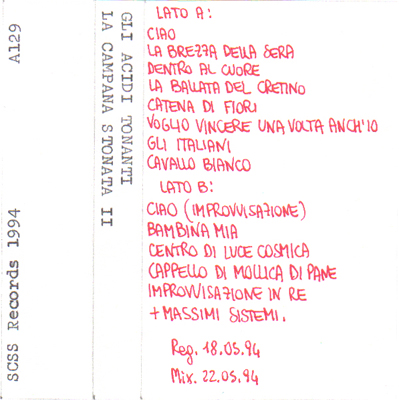 SCSS Records 1994
A129
GLI ACIDI TONANTI
LA CAMPANA STONATA II
LATO A:
CIAO
LA BREZZA DELLA SERA
DENTRO AL CUORE
LA BALLATA DEL CRETINO
CATENA DI FIORI
VOGLIO VINCERE UNA VOLTA ANCH'IO
GLI ITALIANI
CAVALLO BIANCO
LATO B:
CIAO (IMPROVVISAZIONE)
BAMBINA MIA
CENTRO DI LUCE COSMICA
CAPPELLO DI MOLLICA DI PANE
IMPROVVISAZIONE IN RE
+ MASSIMI SISTEMI.
Reg. 18.05.94
Mix. 22.05.94